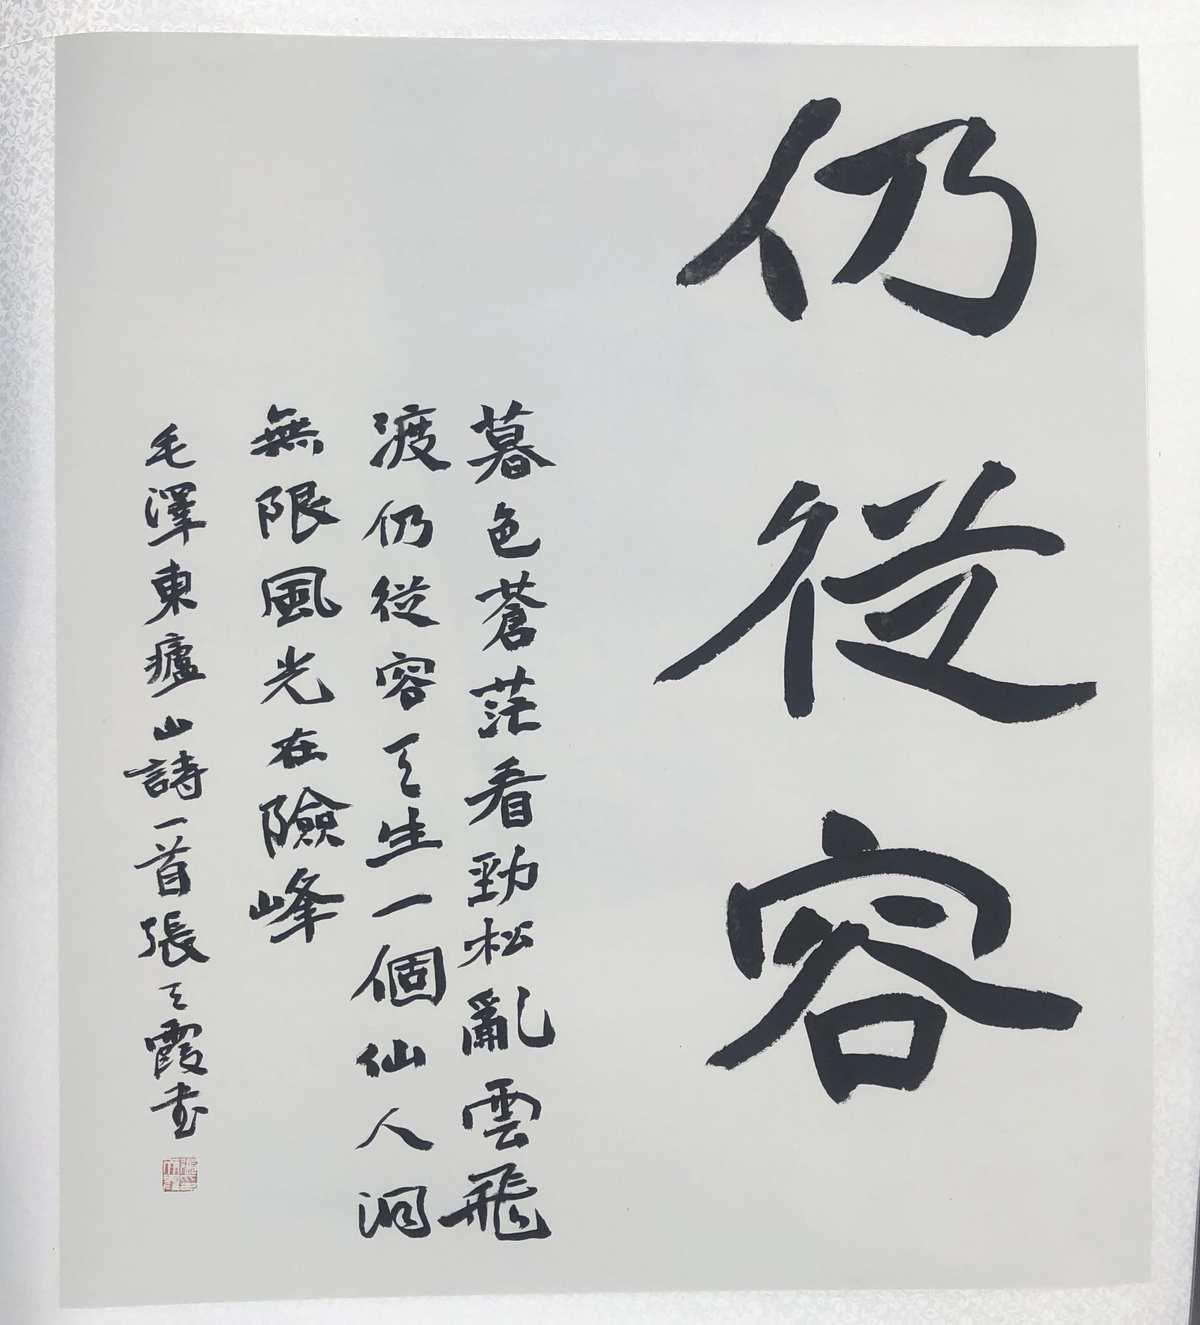 仍從容
暮色蒼茫看勁松亂雲飛
渡仍從容天生一個仙人洞
無限風光在險峰
毛澤東廬山詩一首張天霞書